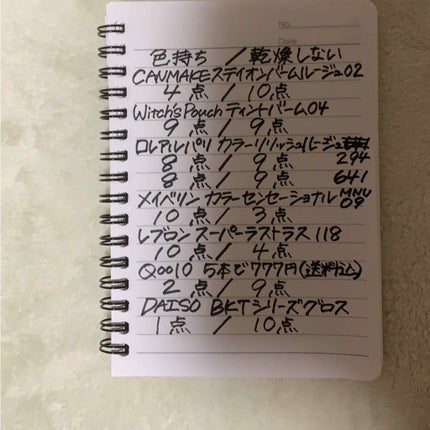 No.
Date
色持ち / 乾燥しない
CANMAKEステイオンバームルージュ02
4点 / 10点
Witch's Pouch ティントバーム04
9点 / 9点
ロレアルパリ カラーリリッシュルージュ
8点 / 9点 294
8点 / 9点 641
メイベリン カラーセンセーショナル MNU 09
10点 / 3点
レブロン スーパーラストラス 118
10点 / 4点
Qoo10 5本で777円(送料込)
2点 / 9点
DAISO BKTシリーズグロス
1点 / 10点